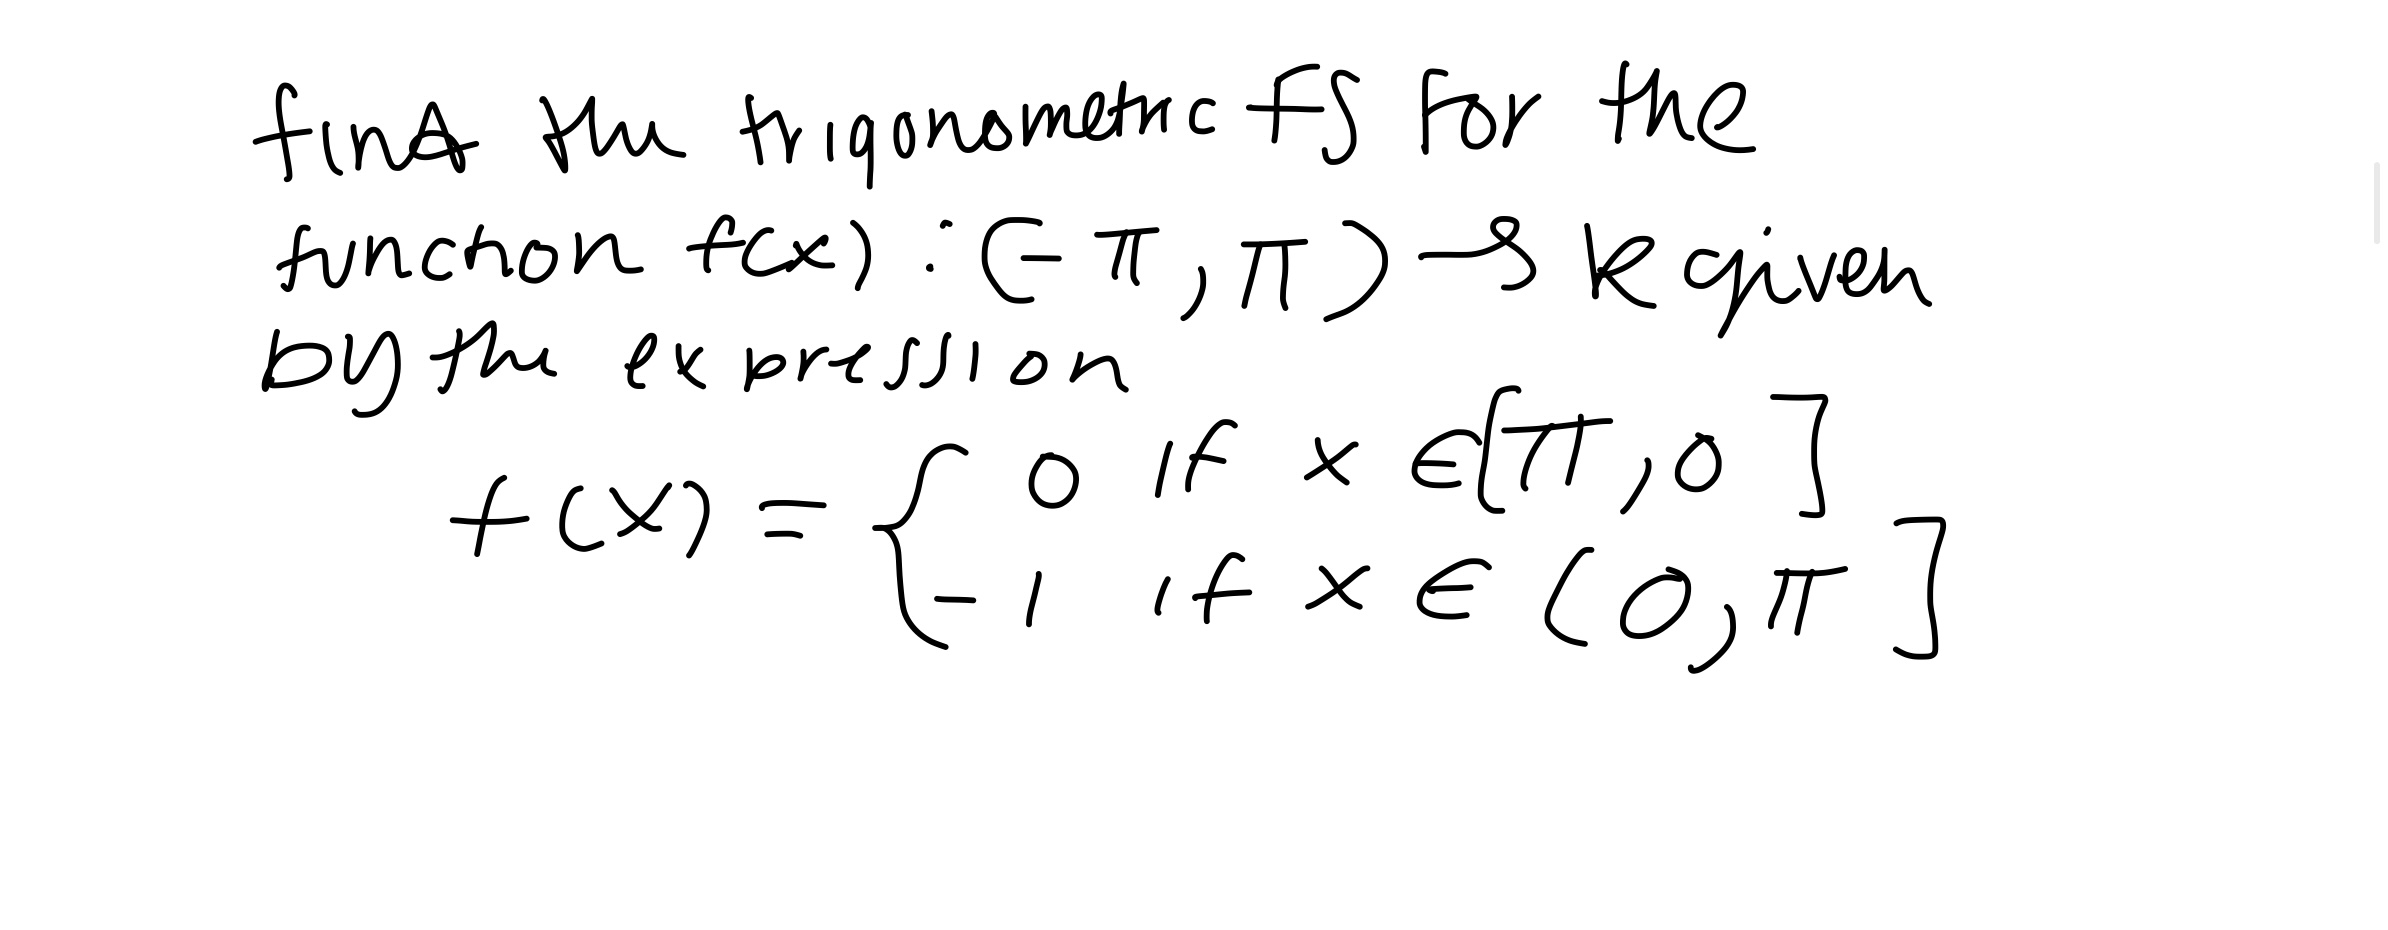 find the trigonometric FS for the
function f(x) : (-π, π) → R given
by the expression
f(x) = { 0 if x ∈ [π, 0]
-1 if x ∈ (0, π]